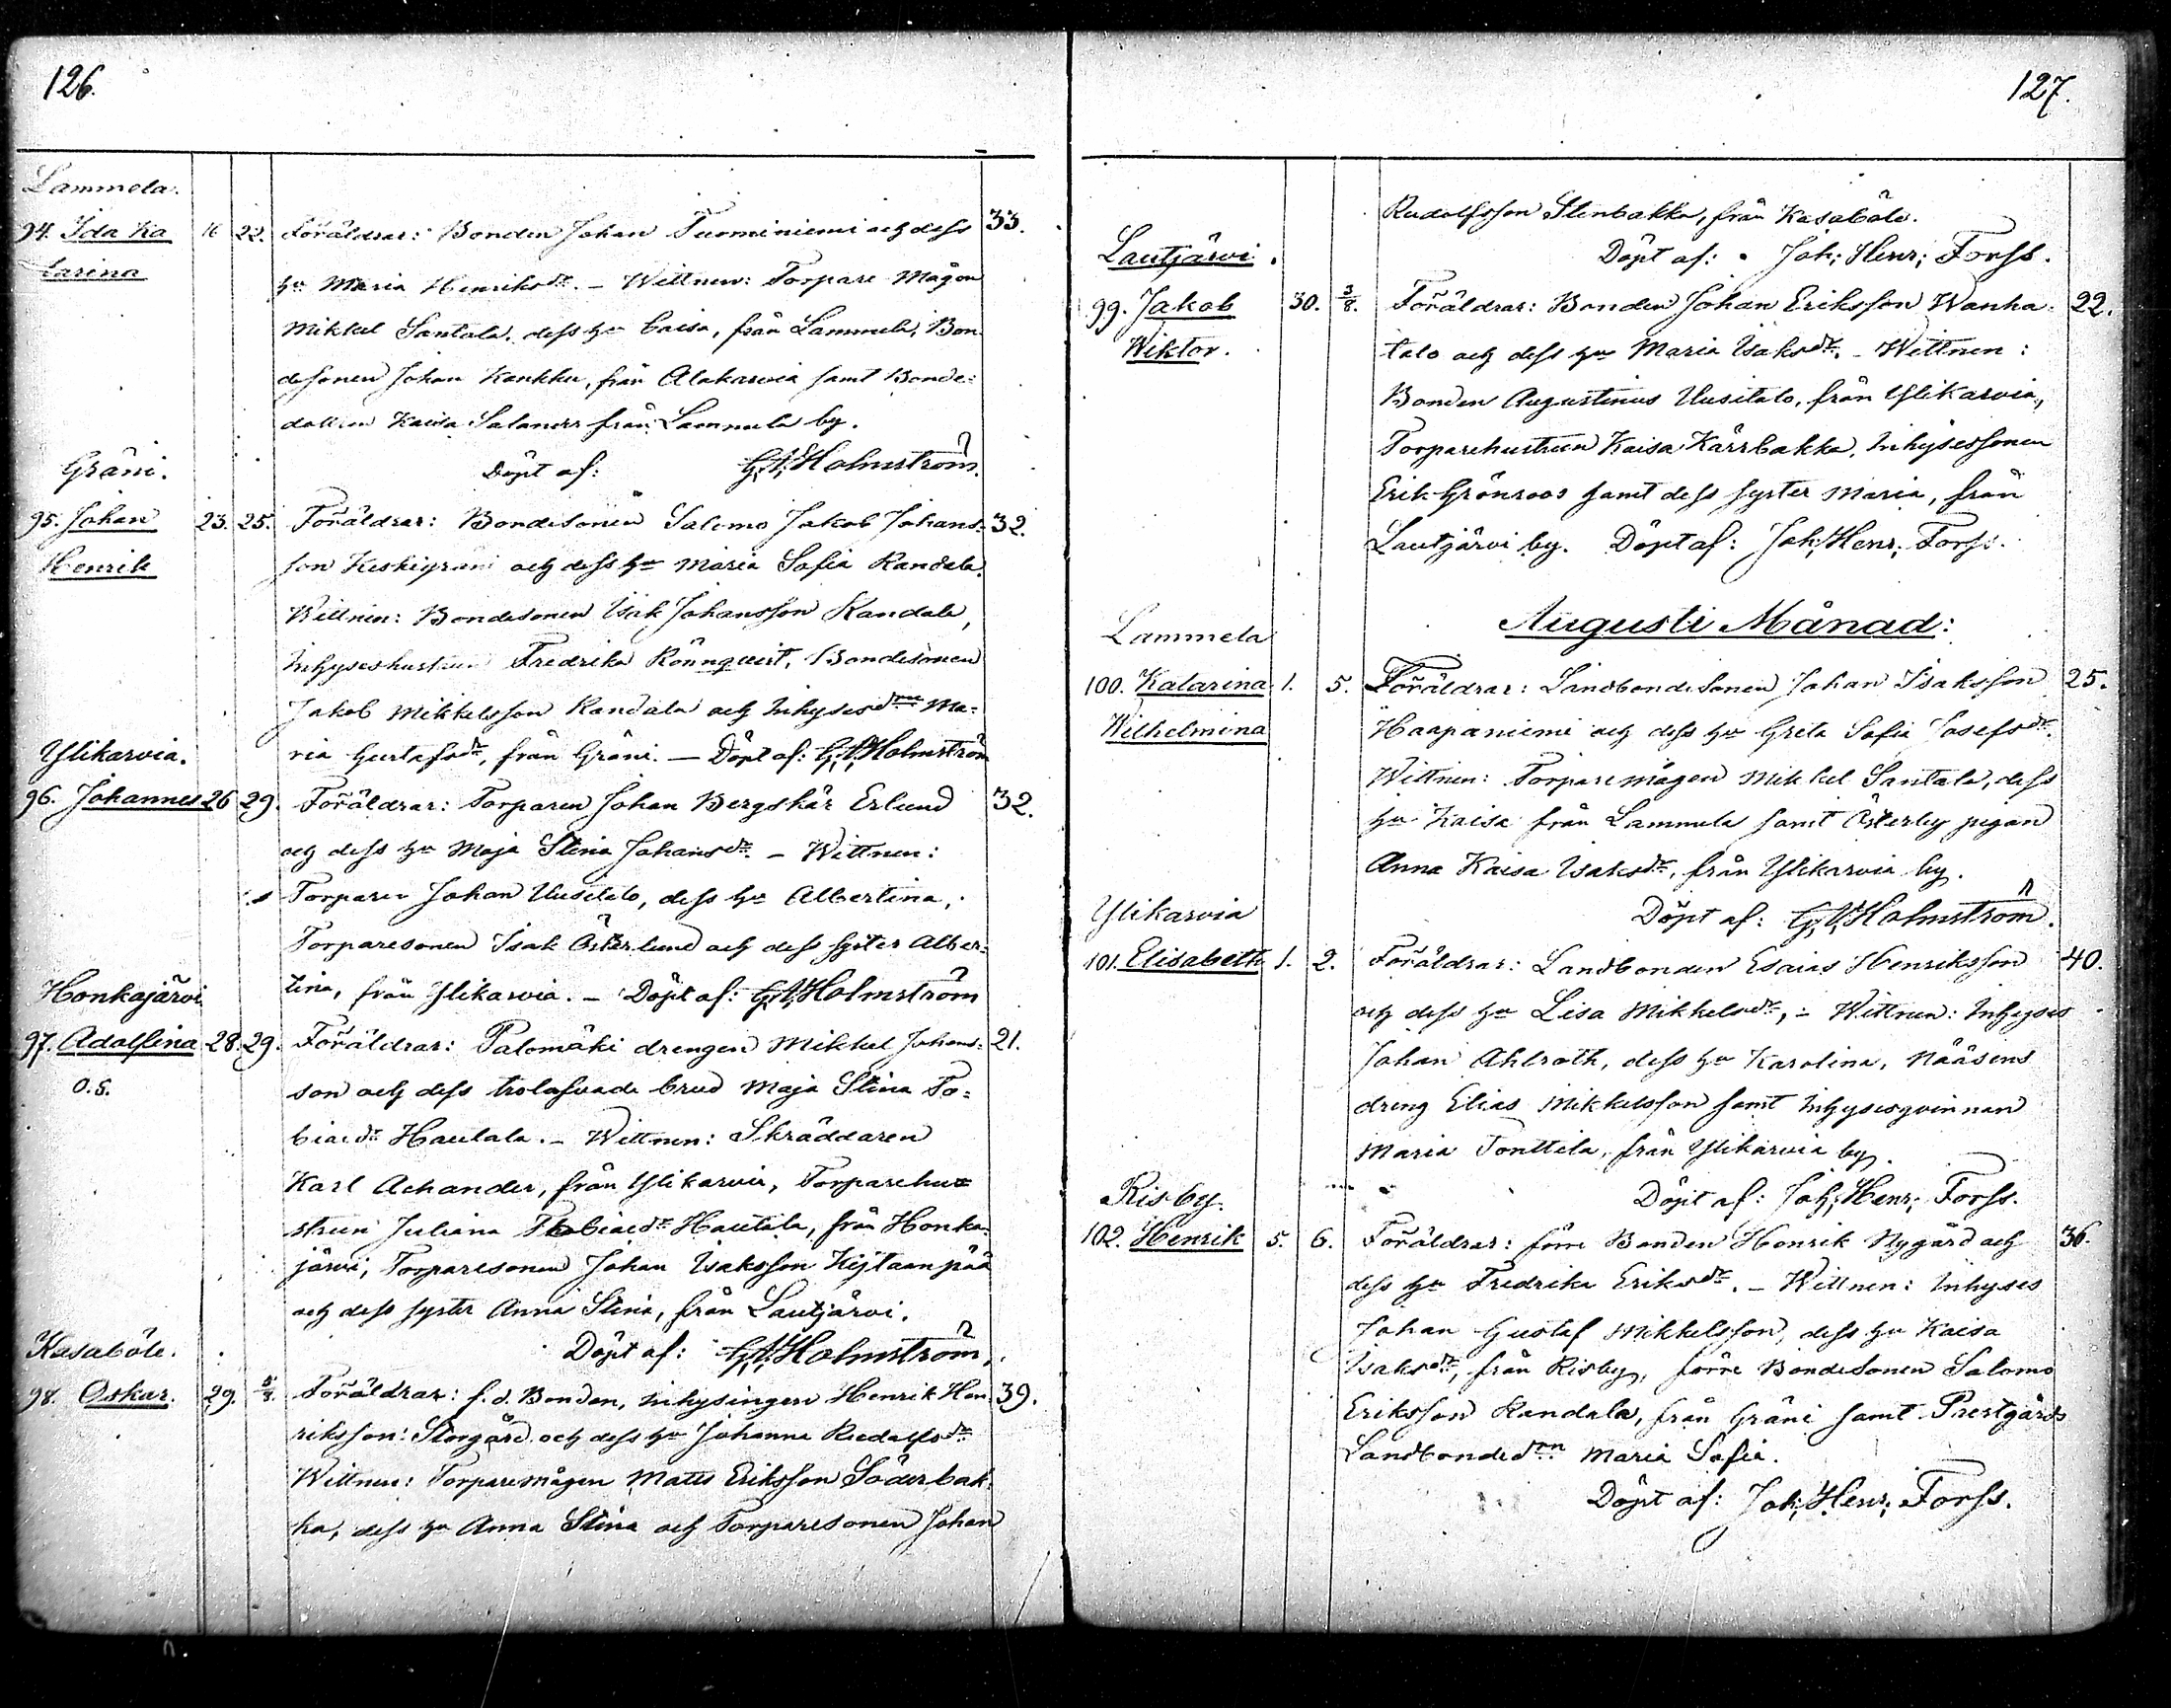 126.
Lammela.
94. Ida Ka 16 22. Föräldrar: Bonden Johan Tuominiemi och dess 33.
tarina
hu Maria Henriksdr. – Wittnen: Torpare Mågen
Mikkel Santala, dess hu Caisa, från Lammela, Bon
desonen Johan Kankku, från Alakarvia samt Bonde:
dottren Kaisa Salander från Lammela by.
Gräni.
Döpt af: G.A. Holmström.
95. Johan 23. 25. Föräldrar: Bondesonen Salomo Jakob Johans: 32.
Henrik
son Keskigräni och dess hu Maria Sofia Randala.
Wittnen: Bondesonen Isak Johansson Randala,
Inhyseshustrun Fredrika Rönnqvist, Bondesonen
Jakob Mikkelsson Randala och Inhysesdrn Ma:
Ylikarvia.
ria Gustafsdr, från Gräni. — Döpt af: G.A. Holmström
96. Johannes 26 29. Föräldrar: Torparen Johan Bergskär Erlund 32.
och dess hu Maja Stina Johansdr. – Wittnen:
Torparen Johan Uusitalo, dess hu Albertina,
Torparesonen Isak Österlund och dess syster Alber:
Honkajärvi
tina, från Ylikarvia. – Döpt af: G.A. Holmström
97. Adolfina 28. 29. Föräldrar: Palomäki drengen Mikkel Johans: 21.
O.Ä.
son och dess trolofvade brud Maja Stina To:
biaedr Hautala. – Wittnen: Skräddaren
Karl Achander, från Ylikarvia, Torparehu
strun Juliana Tobiaedr Hautala, från Honka
järvi, Torparesonen Johan Isaksson Kijtaanpää
och dess syster Anna Stina, från Lautjärvi.
Kasaböle.
Döpt af: G.A. Holmström.
98. Oskar. 29. 5/8. Föräldrar: f.d. Bonden, inhysingen Henrik Hen 39.
riksson Storgård och dess hu Johanna Rudolfsdr
Wittnen: Torparemågen Matts Eriksson Söderbak
ka, dess hu Anna Stina och Torparesonen Johan
127.
Rudolfsson Stenbakka, från Kasaböle.
Lautjärvi.
Döpt af: Joh: Henr: Forss.
99. Jakob 30. 3/8. Föräldrar: Bonden Johan Eriksson Wanha 22.
Wiktor.
talo och dess hu Maria Isaksdr. – Wittnen:
Bonden Augustinus Uusitalo, från Ylikarvia,
Torparehustrun Kaisa Kärrbakka, Inhysessonen
Erik Grönroos samt dess syster Maria, från
Lautjärvi by. Döpt af: Joh: Henr: Forss.
Augusti Månad:
Lammela
100. Katarina 1. 5. Föräldrar: Landbondesonen Johan Isaksson 25.
Wilhelmina
Haapaniemi och dess hu Greta Sofia Josefsdr.
Wittnen: Torparemågen Mikkel Santala, dess
hu Kaisa från Lammela samt Österby pigan
Anna Kaisa Isaksdr, från Ylikarvia by.
Ylikarvia
Döpt af: G.A. Holmström.
101. Elisabeth 1. 2. Föräldrar: Landbonden Esaias Henriksson 40.
och dess hu Lisa Mikkelsdr, – Wittnen: Inhyses
Johan Ahlroth, dess hu Karolina, Nääsens
dreng Elias Mikkelsson samt Inhysesqvinnan
Maria Tonttila, från Ylikarvia by.
Risby.
Döpt af: Joh: Henr: Forss.
102. Henrik 5. 6. Föräldrar: förre Bonden Henrik Nygård och 36.
dess hu Fredrika Eriksdr. – Wittnen: Inhyses
Johan Gustaf Mikkelsson, dess hu Kaisa
Isaksdr, från Risby, förre Bondesonen Salomo
Eriksson Randala, från Gräni samt Prestgårds
Landbondedrn Maria Sofia.
Döpt af: Joh: Henr: Forss.